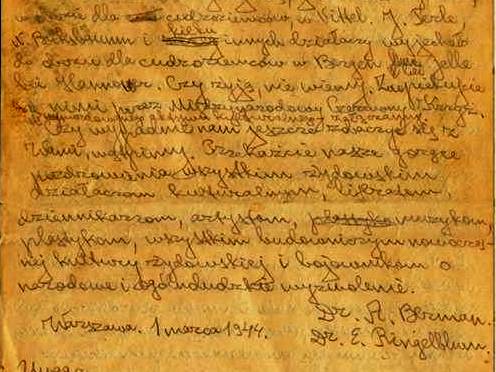 w obozie dla cudzoziemców w Vittel. J. Perle,
N. Boksbaum i kilku innych działaczy wyjechało
do obozu dla cudzoziemców w Bergen Celle
bei Hannover. Czy żyją, nie wiemy. Zaopiekujcie
się nimi przez Międzynarodowy Czerwony Krzyż.
Czy wypadnie nam jeszcze zobaczyć się z
Wami, wątpimy. Przekażcie nasze gorące
pozdrowienia wszystkim żydowskim
działaczom kulturalnym, literatom,
dziennikarzom, artystom, muzykom,
plastykom, wszystkim budowniczym nowoczes-
nej kultury żydowskiej i bojownikom o
narodowe i ogólnoludzkie wyzwolenie.
Dr. A. Berman.
Warszawa. 1 marca 1944.
Dr. E. Ringelblum.